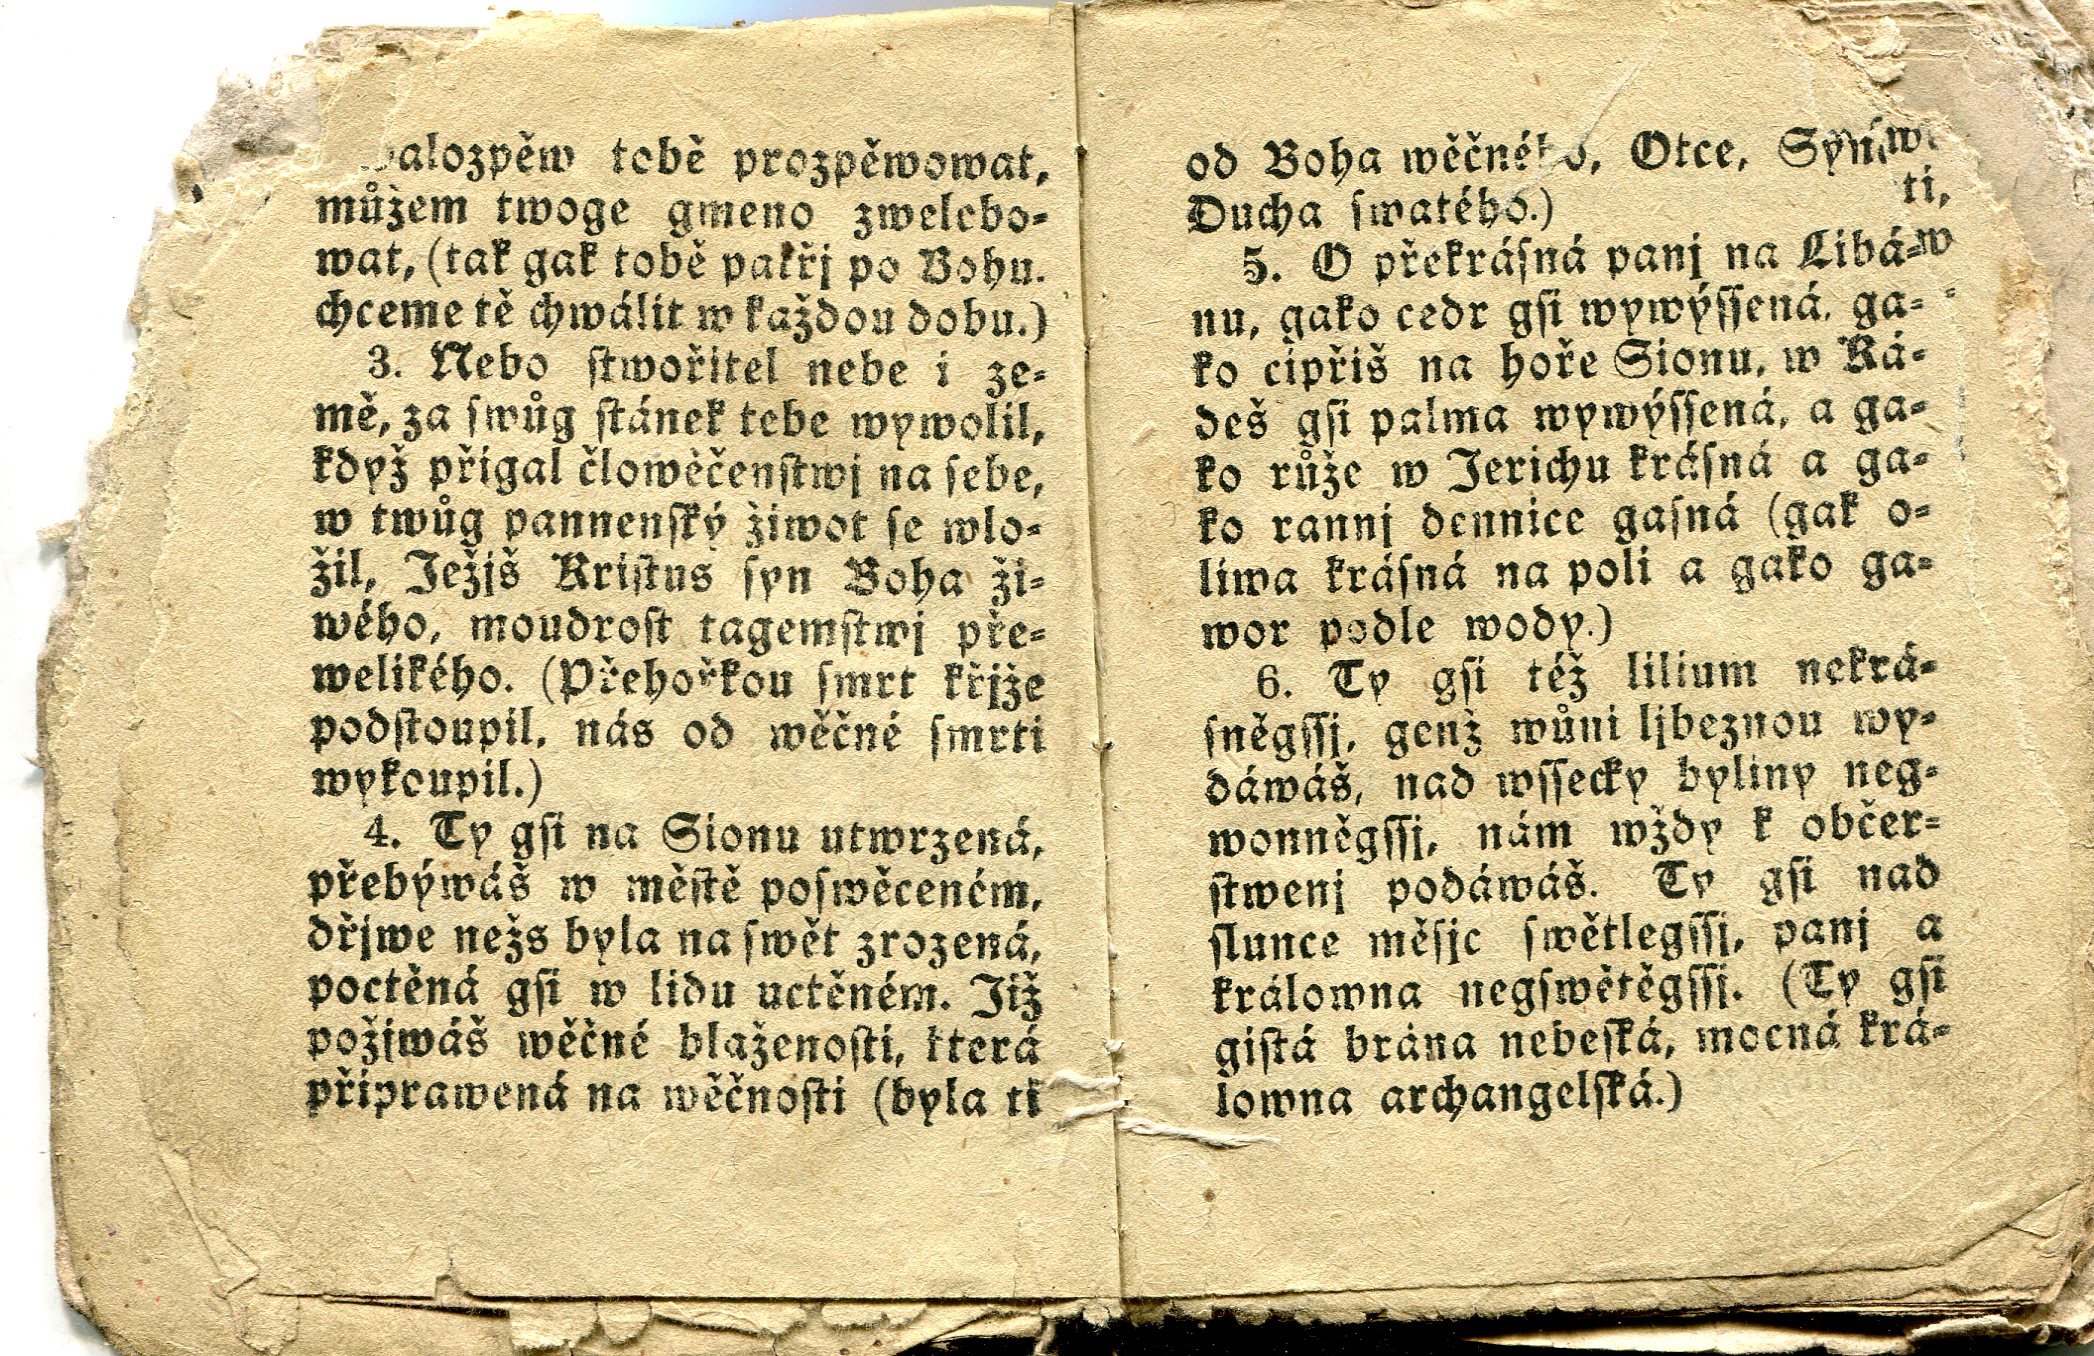 žalozpěw tobě prozpěwowat,
můžem twoge gmeno zwelebo-
wat, (tak gak tobě patřj po Bohu.
chceme tě chwálit w každou dobu.)
3. Nebo stwořitel nebe i ze-
mě, za swůg stánek tebe wywolil,
když přigal člowěčenstwj na sebe,
w twůg pannenský žiwot se wlo-
žil, Ježjš Kristus syn Boha ži-
wého, moudrost tagemstwj pře-
welikého. (Přehořkou smrt křjže
podstoupil, nás od wěčné smrti
wykoupil.)
4. Ty gsi na Sionu utwrzená,
přebýwáš w městě poswěceném,
dřjwe nežs byla na swět zrozená,
poctěná gsi w lidu uctěném. Již
požjwáš wěčné blaženosti, která
připrawená na wěčnosti (byla ti
od Boha wěčného, Otce,
Ducha swatého.)
5. O překrásná panj na Libá-
nu, gako cedr gsi wywýssená, ga-
ko cipřiš na hoře Sionu, w Ká-
deš gsi palma wywýssená, a ga-
ko růže w Jerichu krásná a ga-
ko rannj dennice gasná (gak o-
liwa krásná na poli a gako ga-
wor podle wody.)
6. Ty gsi též lilium nekrá-
sněgssj, genž wůni ljbeznou wy-
dáwáš, nad wssecky byliny neg-
wonněgssj, nám wždy k občer-
stwenj podáwáš. Ty gsi nad
slunce měsjc swětlegssj, panj a
králowna negswětěgssj. (Ty gsi
gistá brána nebeská, mocná krá-
lowna archangelská.)